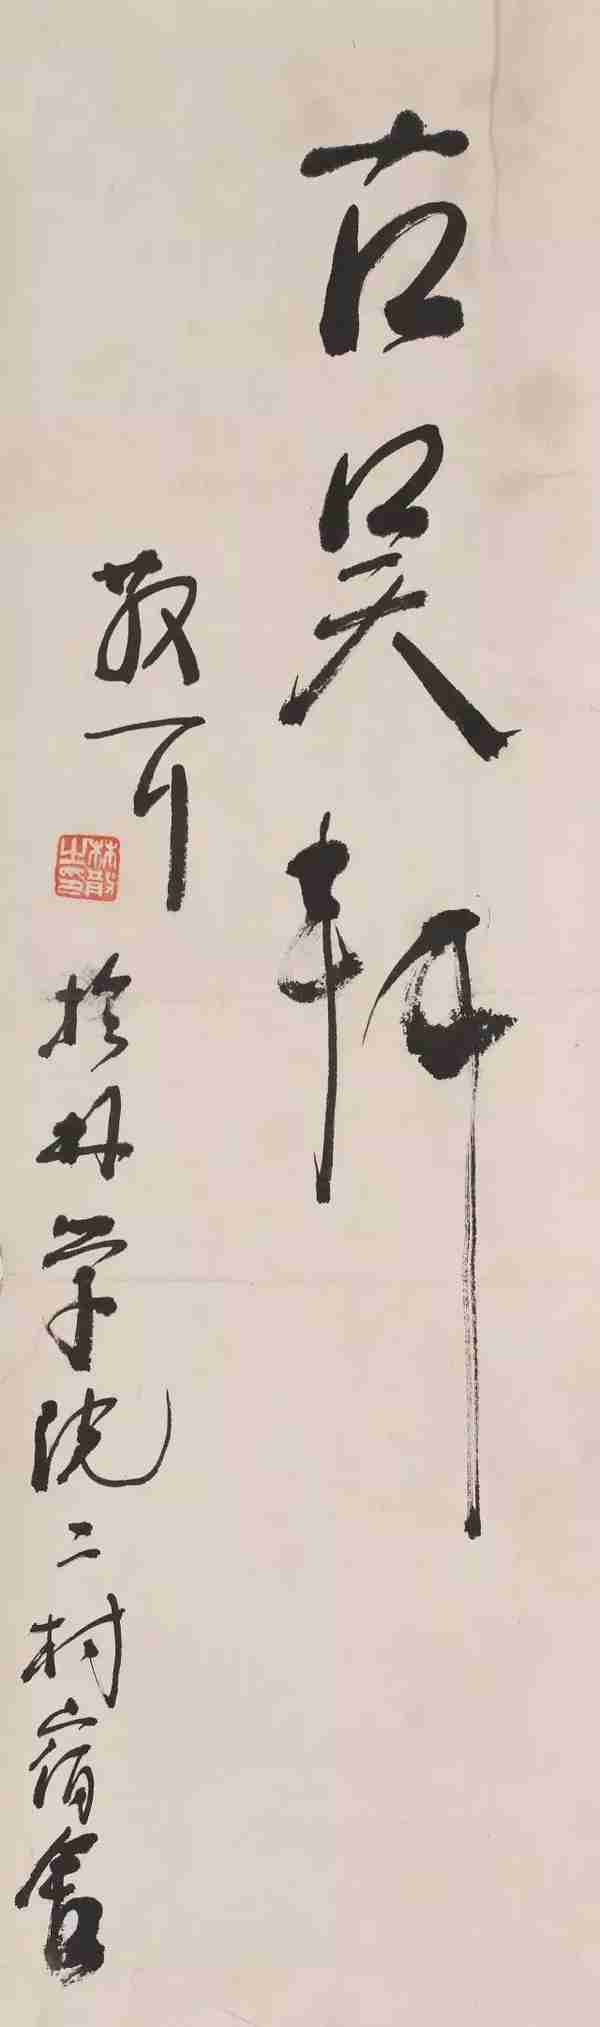 古吴轩
散耳
林散之印
於林学院二村宿舍